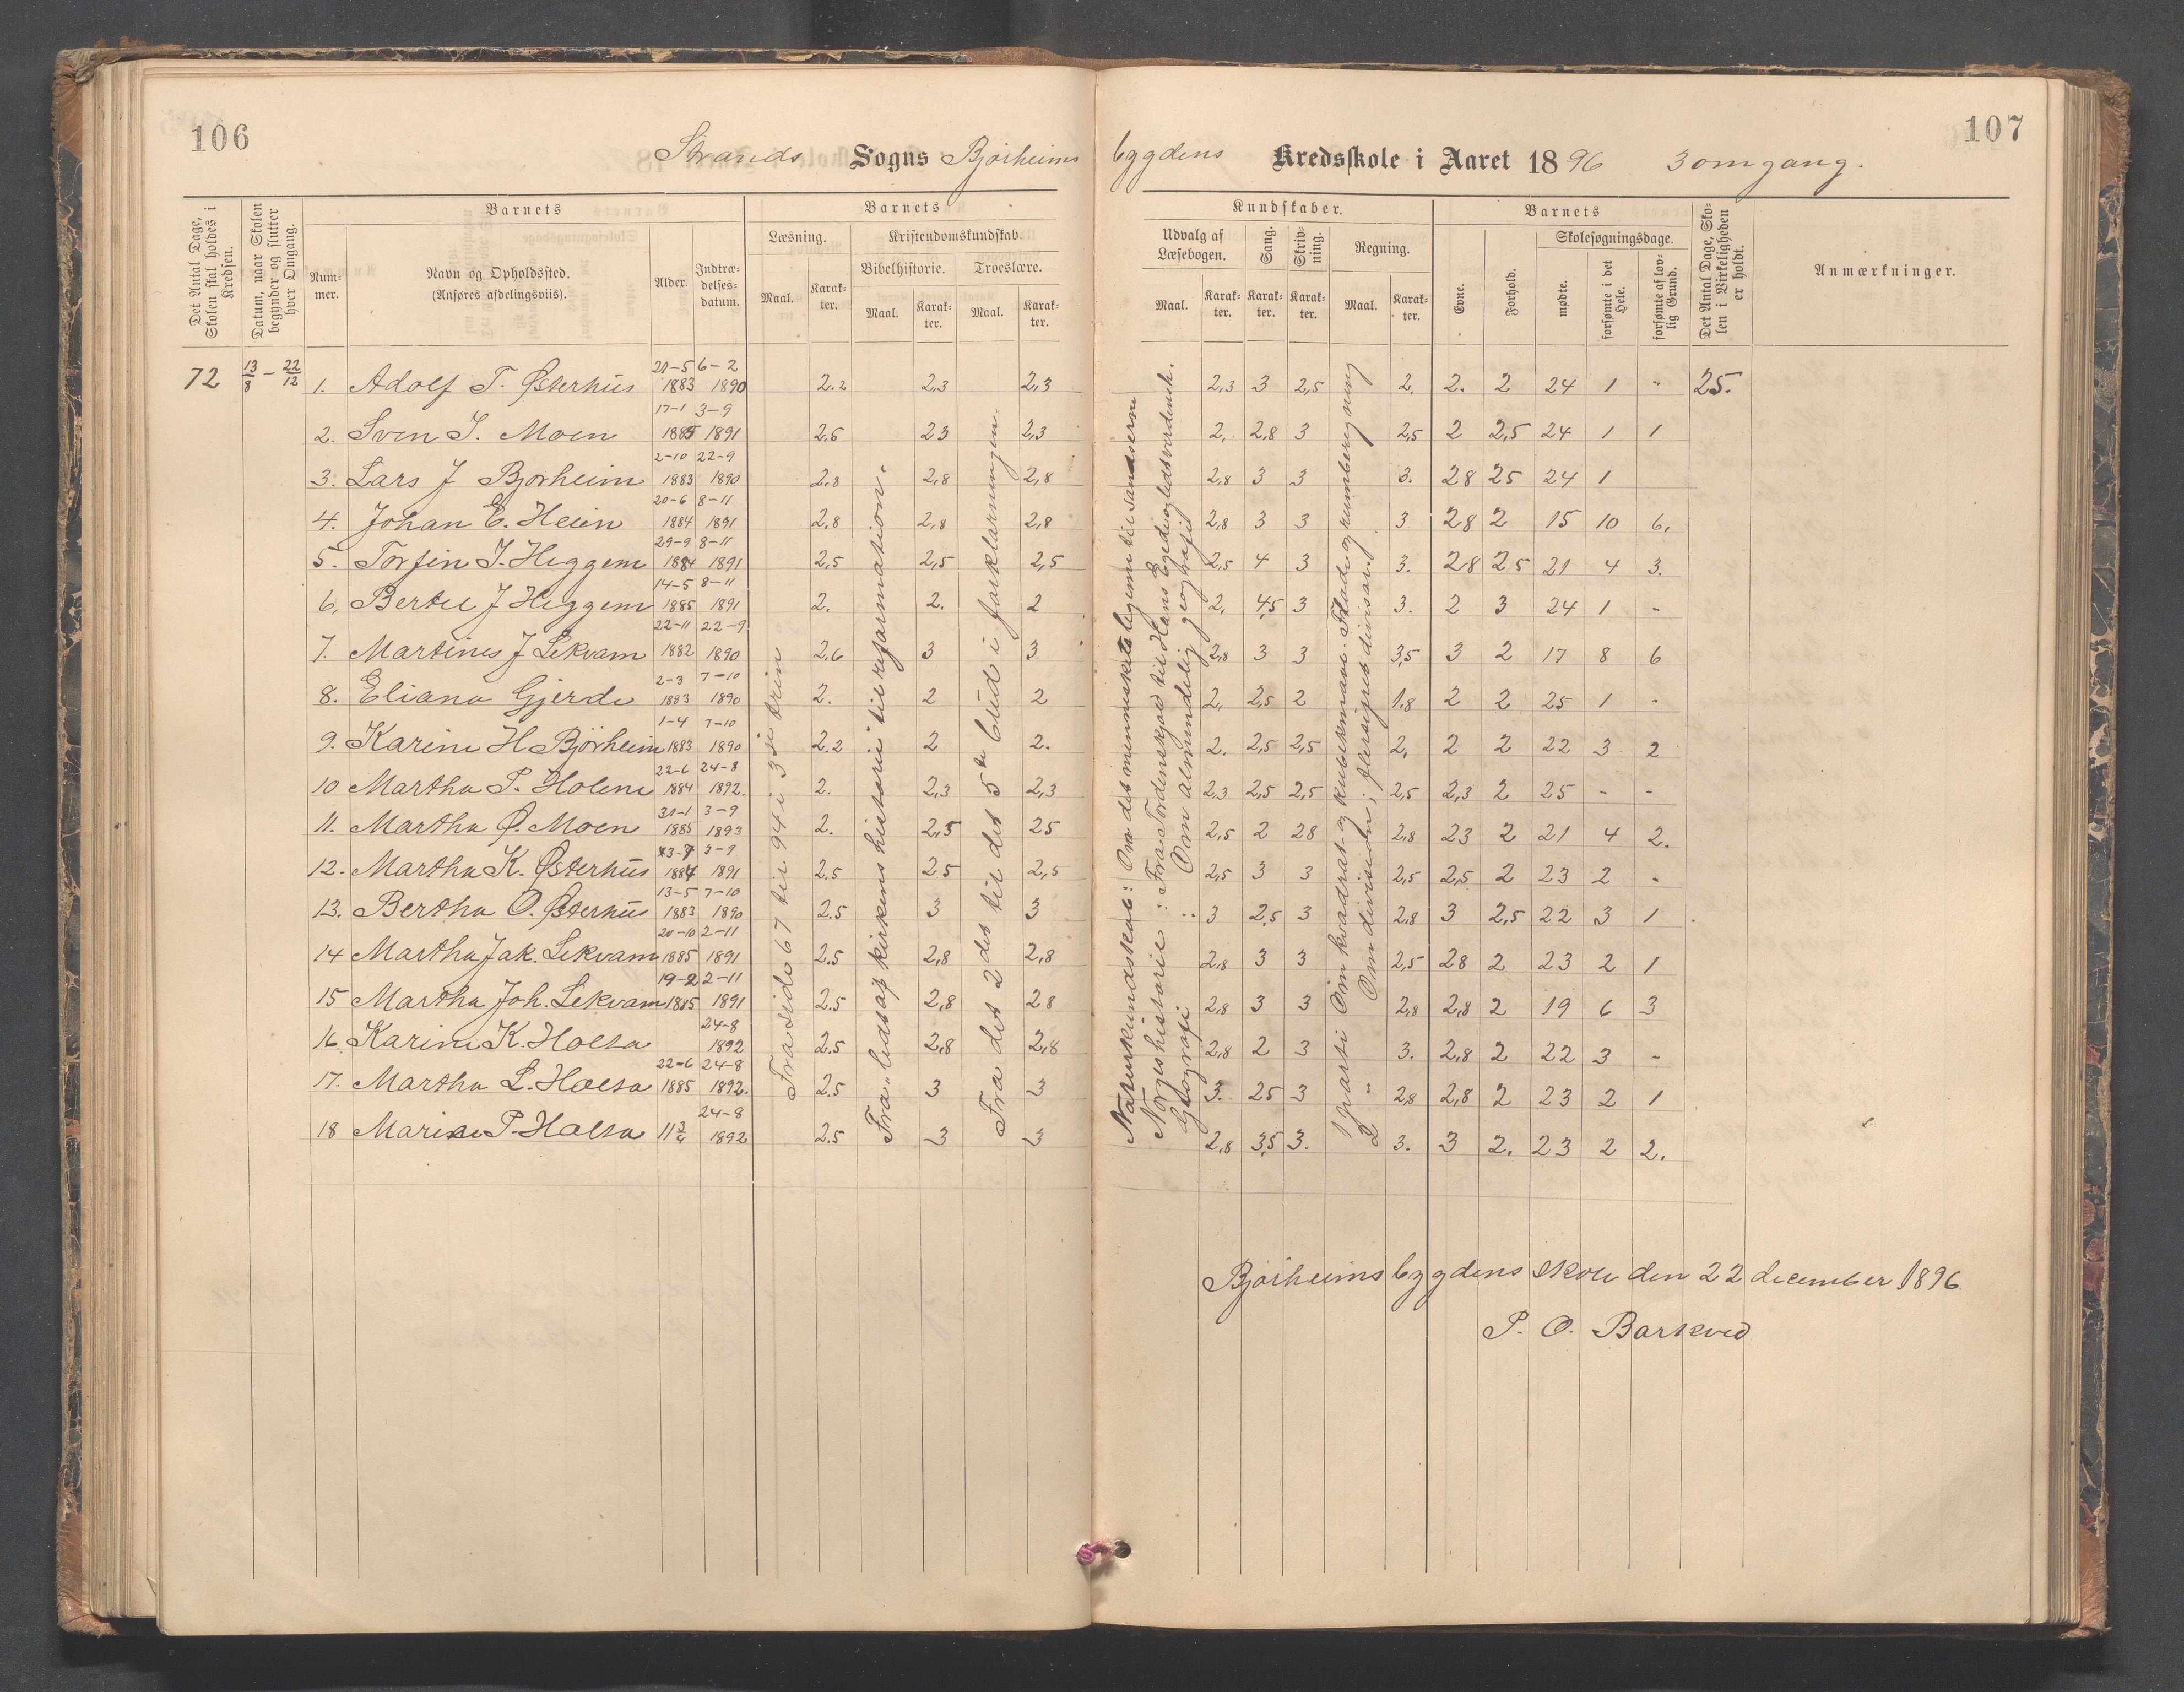 106
107
Strands Sogns Bjørheims bygdens Kredsskole i Aaret 1896 3 omgang.
Det Antal Dage, Skolen skal holdes i Kredsen.
Datum, naar Skolen begynder og slutter hver Omgang.
Barnets
Nummer.
Navn og Opholdssted.
(Anføres afdelingsviis).
Alder.
Indtrædelsesdatum.
Barnets
Læsning.
Maal.
Karakter.
Kristendomskundskab.
Bibelhistorie.
Maal.
Karakter.
Troeslære.
Maal.
Karakter.
Kundskaber.
Udvalg af Læsebogen.
Maal.
Karakter.
Sang.
Karakter.
Skrivning.
Karakter.
Regning.
Maal.
Karakter.
Barnets
Evne.
Forhold.
Skolesøgningsdage.
mødte.
forsømte i det Hele.
forsømte af lovlig Grund.
Det Antal Dage, Skolen i Virkeligheden er holdt.
Anmærkninger.
72 13/8 – 22/12
1. Adolf T. Østerhus 20-5 1883 6-2 1890 2.2 2,3 2,3 2,3 3 2,5 2. 2. 2 24 1 - 25.
2. Sven S. Moen 17-1 1885 3-9 1891 2.5 23 2,3 2, 2,8 3 2,5 2 2,5 24 1 1
3. Lars J Bjørheim 2-10 1883 22-9 1890 2.8 2,8 2,8 2,8 3 3 3. 28 25 24 1
4. Johan E. Heien 20-6 1884 8-11 1891 2.8 2,8 2,8 2,8 3 3 3. 28 2 15 10 6,
5. Torfin J. Heggem 29-9 1884 8-11 1891 2,5 2,5 2,5 2,5 4 3 3. 28 25 21 4 3.
6, Bertel J Heggem 14-5 1885 8-11 1891 2. 2. 2 2, 4,5 3 3. 2 3 24 1 -
7. Martines J Lekvam 22-11 1882 22-9 1890 2,6 3 3 2,8 3 3 3,5 3 2 17 8 6
8. Eliana Gjerde 2-3 1883 7-10 1890 2. 2 2 2, 2,5 2 1,8 2 2 25 1 -
9. Karine H Bjørheim 1-4 1883 7-10 1890 2.2 2 2. 2. 2,5 2,5 2, 2 2 22 3 2
10 Martha P. Holene 22-6 1884 24-8 1892. 2. 2,3 2,3 2,3 2,5 2,5 2,5 2,3 2 25 - -
11. Martha Ø. Moen 31-1 1885 3-9 1893 2. 2,5 25 2,5 2 28 2,8 23 2 21 4 2.
12. Martha K. Østerhus 1884 3-9 1891 2.5 2.5 2,5 2,5 3 3 2,5 2,5 2 23 2 -
13. Bertha O. Østerhus 13-5 1883 7-10 1890 2.5 3 3 3 2,5 3 2,8 3 2,5 22 3 1
14 Martha Jak. Lekvam 20-10 1885 2-11 1891 2.5 2,8 2,8 2,8 3 3 2,5 28 2 23 2 1
15 Martha Joh. Lekvam 19-2 1885 2-11 1891 2.5 2,8 28 2,8 3 3 2,8 2,8 2 19 6 3
16. Karine K. Holta 24-8 1892 2.5 2,8 2,8 2,8 2 3 3. 2,8 2 22 3 -
17. Martha L. Holta 22-6 1885 24-8 1892. 2.5 3 3 3. 25 3 2,8 2,8 2 23 2 1
18 Marine P Holta 11 3/4 24-8 1892 2.5 3 3 2,8 3,5 3. 3. 3 2. 23 2 2.
Fra side 67 til 94 i 3die trin
Fra "ledstap kirkens historie til reformationen.
Fra det 2det til det 5te bud i forklaringen.
Naturkundskab: Om det menneskelige legeme til sandserne
Norgeshistorie : Fra Tordenskjold til Hans Egede og ledsverdensk.
Geografi : Om almindelig geografi
1 parti Om kvadrat- og kubikmaal. Flade og rumberegning
2 " Om division i flersifret divisor.
Bjørheimsbygdens skole den 22 december 1896
P. O. Barkved